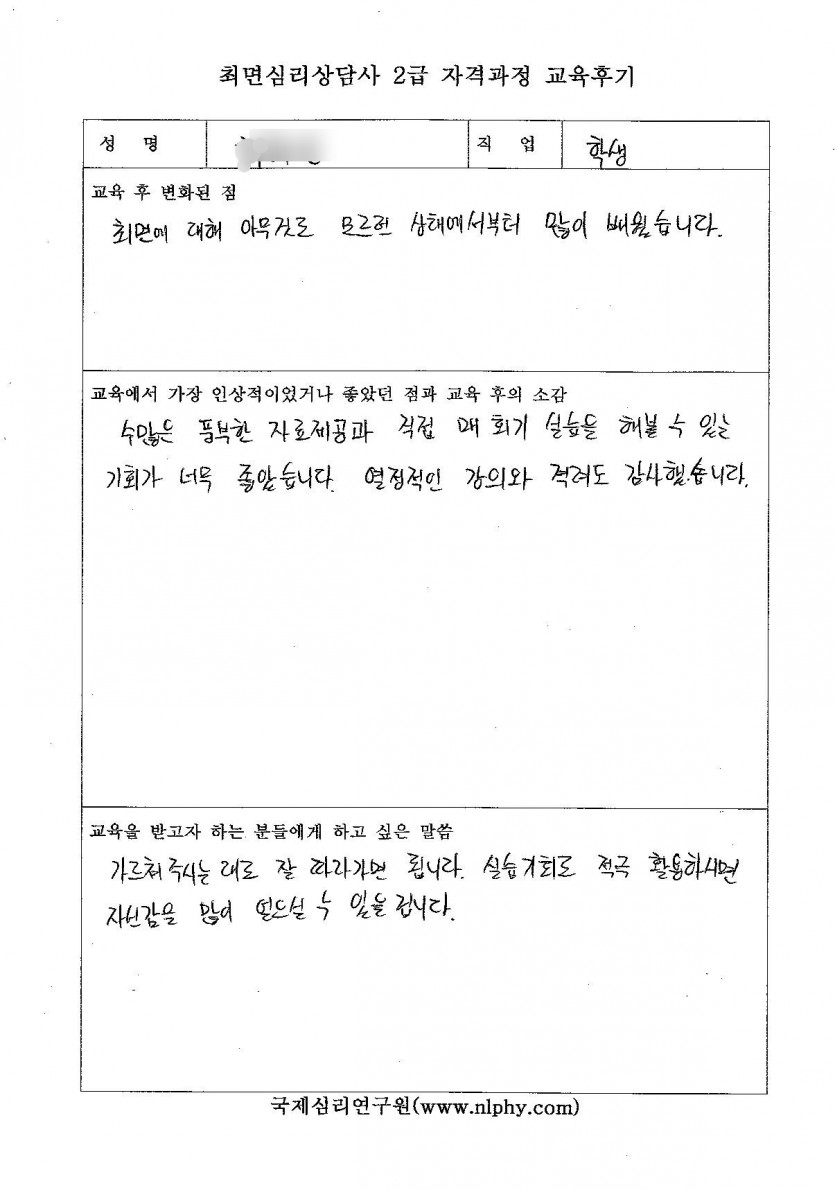 최면심리상담사 2급 자격과정 교육후기
성 명 직 업 학생
교육 후 변화된 점
최면에 대해 아무것도 모르던 상태에서부터 많이 배웠습니다.
교육에서 가장 인상적이었거나 좋았던 점과 교육 후의 소감
수많은 풍부한 자료제공과 직접 매 회기 실습을 해볼 수 있는
기회가 너무 좋았습니다. 열정적인 강의와 격려도 감사했습니다.
교육을 받고자 하는 분들에게 하고 싶은 말씀
가르쳐 주시는 대로 잘 따라가면 됩니다. 실습기회도 적극 활용하시면
자신감을 많이 얻으실 수 있을 겁니다.
국제심리연구원(www.nlphy.com)